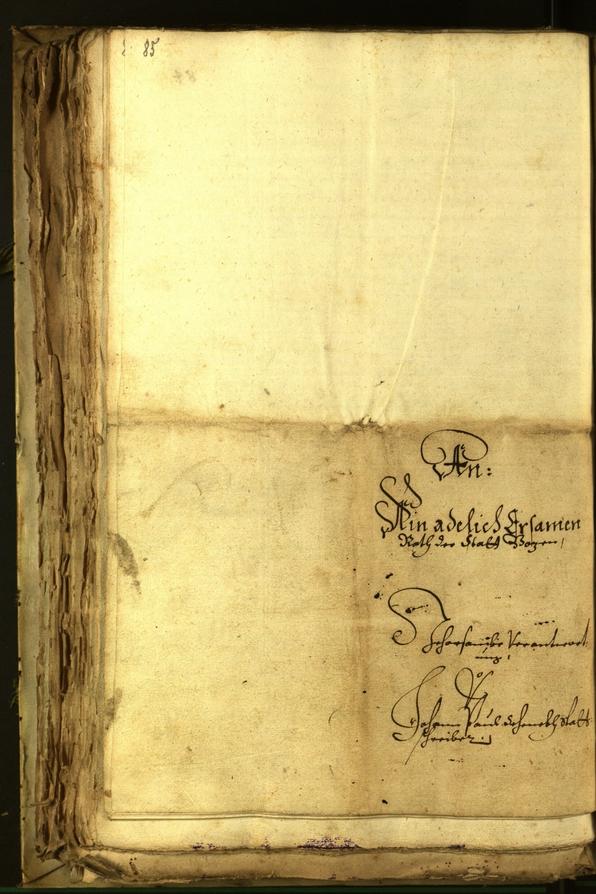 85
An:
Ain adelich Ersamen
Rath der Statt Bozen /
Gehorsambe Verantwort
ung /
Johann Paul Statt
schreiber